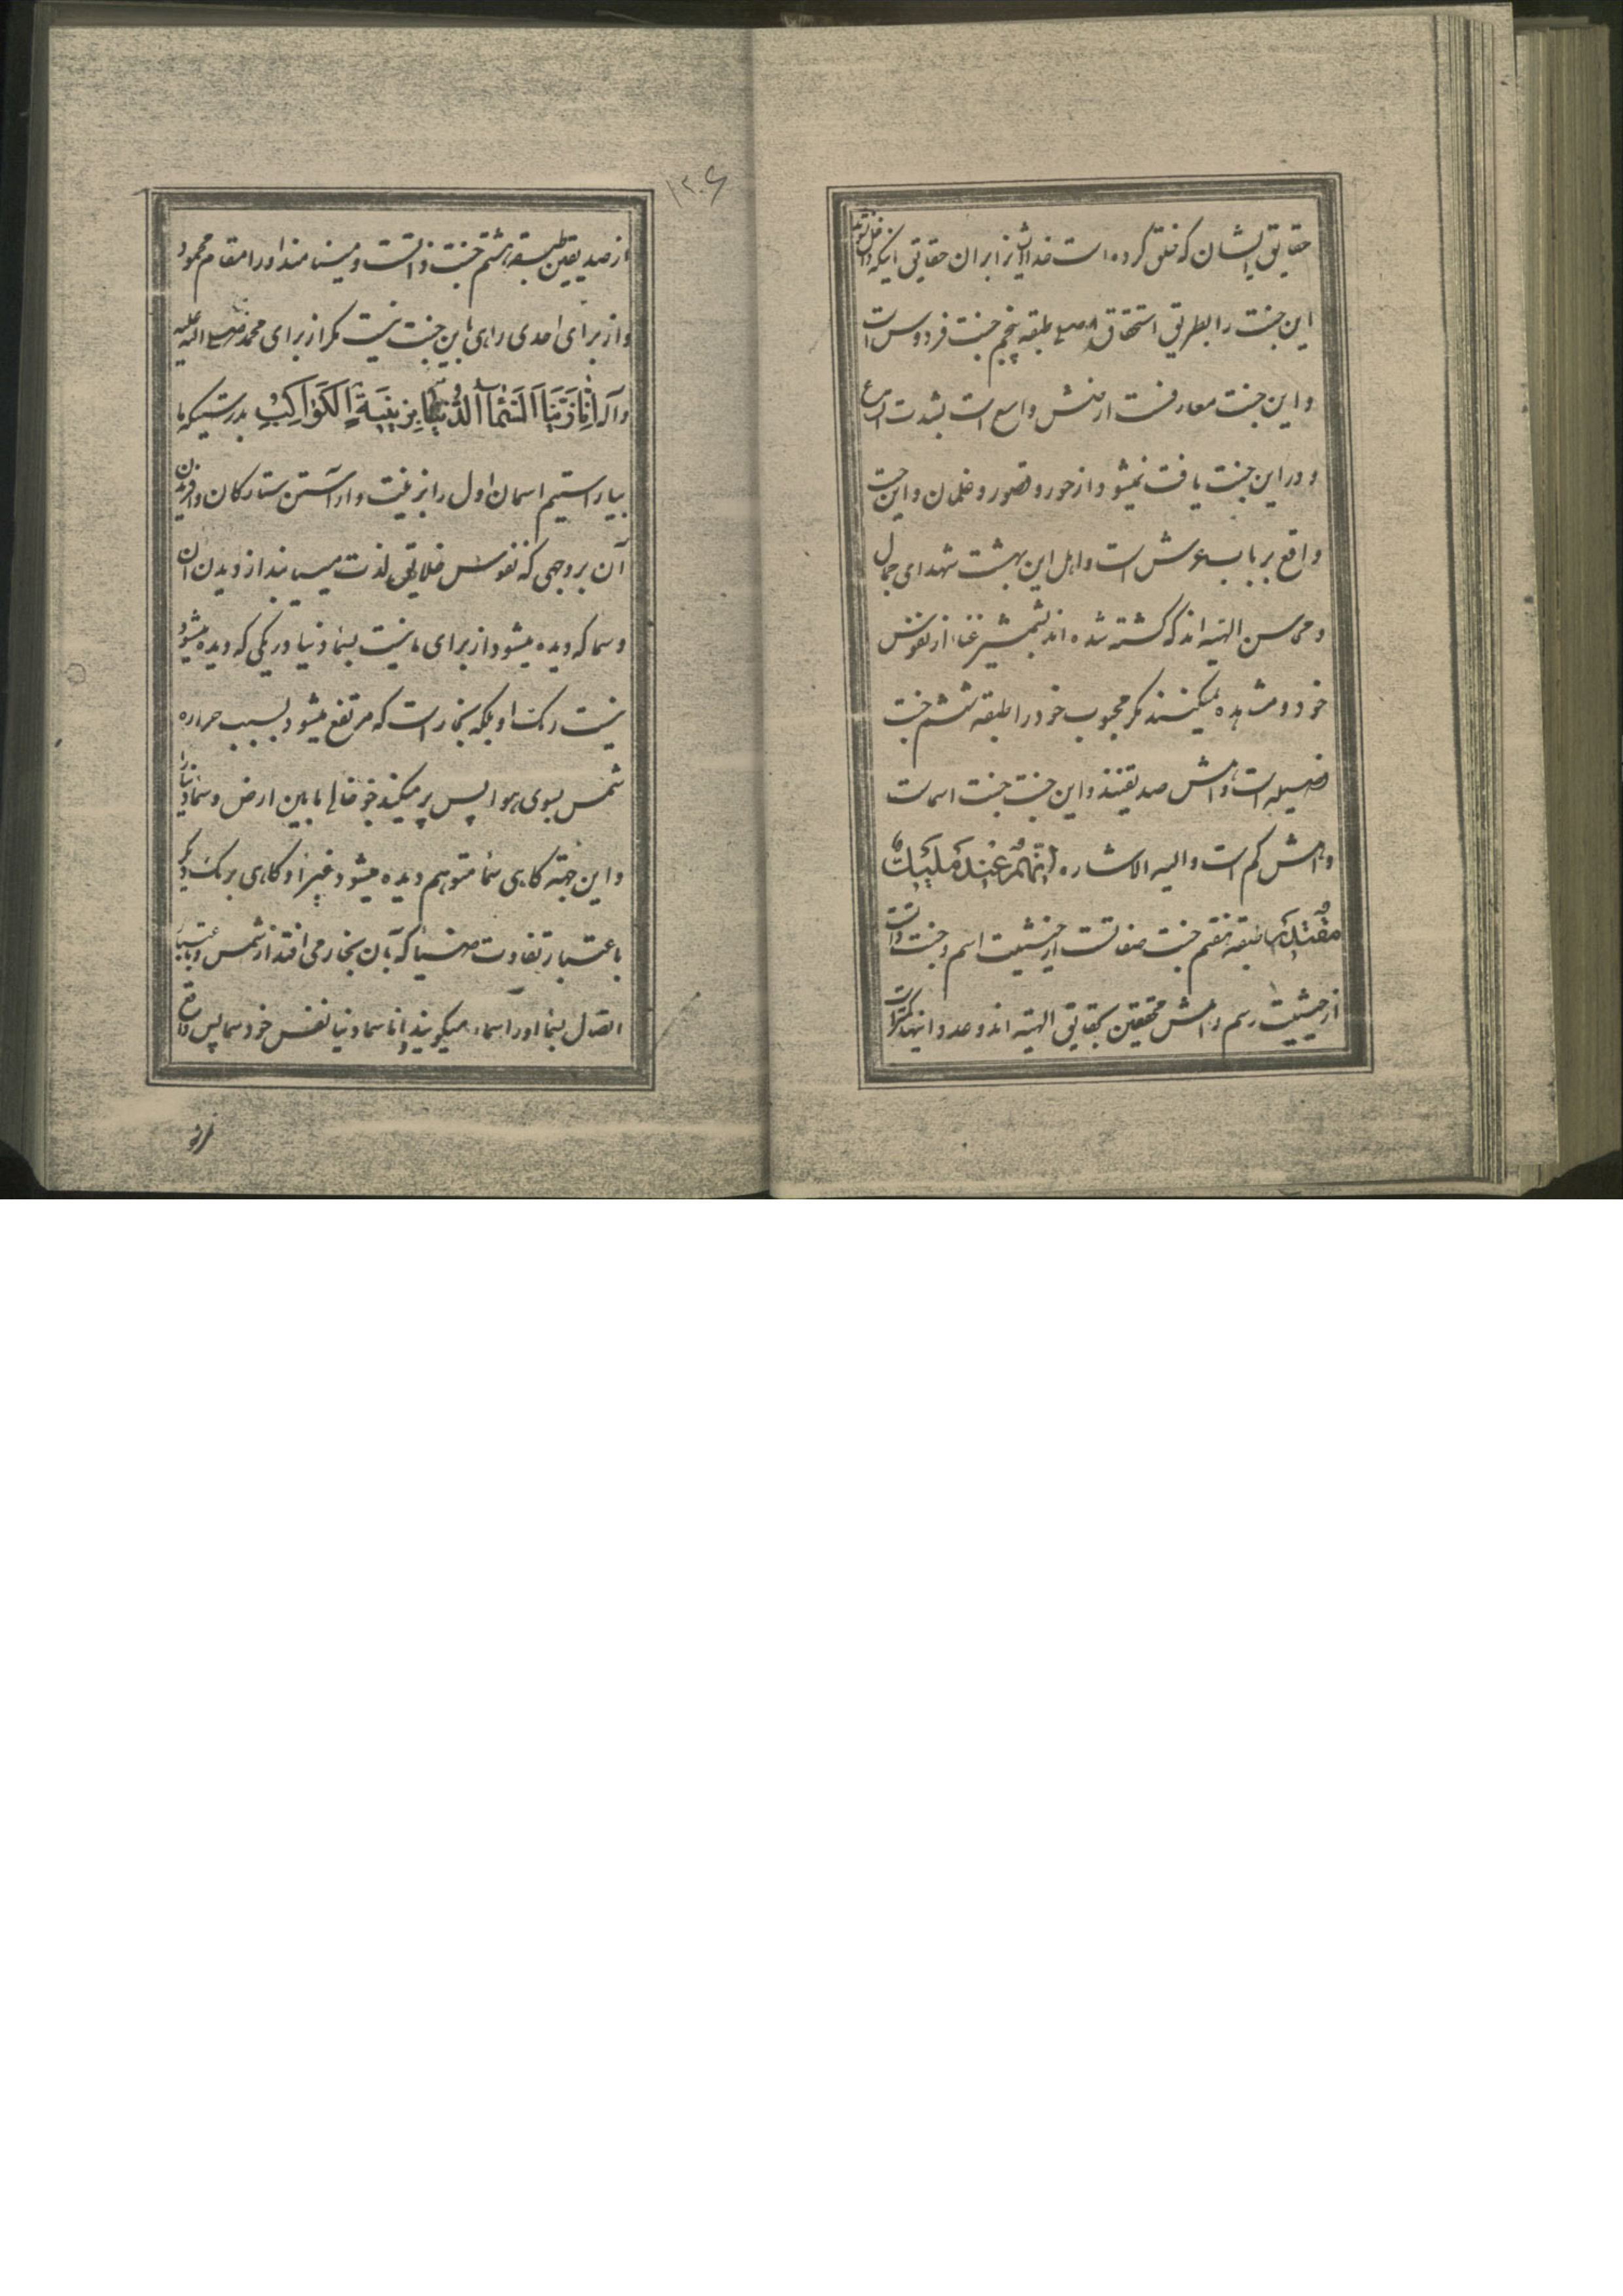 حقایق ایشان که خلق کرده است خدا ایشانرا بران حقایق اینکه داخل شوند
این جنت را بطریق استحقاق و اصلی طبقه پنجم جنت فردوس است
و این جنت معارفست ارضش واسع است بشدت اتساع
و در این جنت یافت نمیشود از حور و قصور و غلمان و این جنت
واقع بر باب عرش است و اهل این بهشت شهدای جمال
و محاسن الهیه اند که کشته شده اند بشمشیر فنا از نفوس
خود و مشاهده نمیکنند مکر محبوب خود را طبقه ششم جنت
فضیله است و اهلش صدیقنند و این جنت جنت اسمات
و اهلش کم است و الیه الاشاره انهم عند ملیک
مقتدر طبقه هفتم جنت صفاتست از حیثیت اسم و جنت ذات است
از حیثیت رسم و اهلش محققین بحقایق الهیه اند و عدد اینها کمتر است
۱۲۰۶
از صدیقین طبقه هشتم جنت ذاتست و مینامند او را مقام محمود
و از برای احدی راهی باین جنت نیست مکر از برای محمد صلی الله علیه
و آله اِنّا زَیَّنَّا السَّمآءَ الدُّنیا بِزینَةٍ الکَواکِبِ بدرستیکه ما
بیاراستیم اسمان اول را بزینت و اراستن ستارکان و افریدن
آن بروجهی که نفوس خلایق لذت میابند از دیدن ان
و سما که دیده میشود از برای ما نیست بسماء دنیا و رنکی که دیده میشود
نیست رنک او بلکه بخار است که مرتفع میشود بسبب حراره
شمس بسوی هوا پس پر میکند جو خالی مابین ارض و سماء دنیا را
و این جهته کاهی سماء متوهم دیده میشود غبرا و کاهی برنک دیکر
باعتبار تفاوت ضیا که بان بخار می افتد از شمس و باعتبار
اتصال بسما او را سماء میکویند و اما سماء دنیا نفس خود سما پس واقع